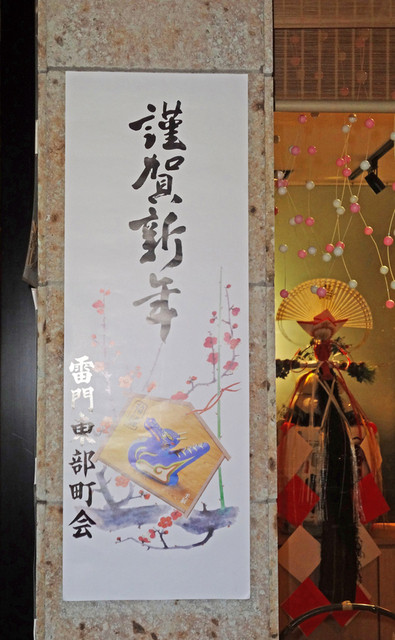 謹賀新年
雷門東部町会